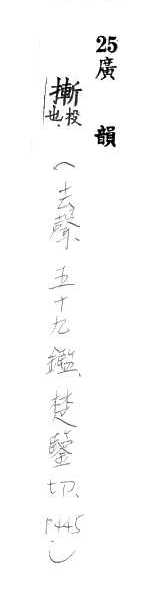 25廣韻
摲投也.
(去聲、五十九鑑、楚鑒切、P445)